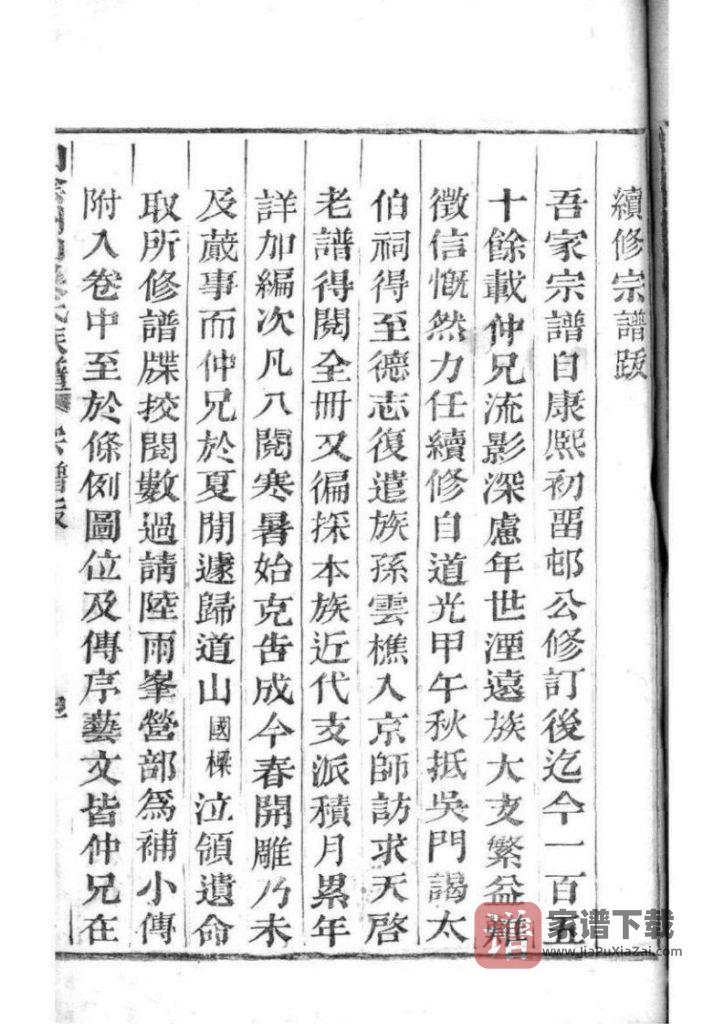 續修宗譜跋
吾家宗譜自康熙初畱邨公修訂後迄今一百五
十餘載仲兄流影深慮年世湮遠族大支繁益難
徵信慨然力任續修自道光甲午秋抵吳門謁太
伯祠得至德志復遣族孫雲樵入京師訪求天啓
老譜得閱全冊又徧採本族近代支派積月累年
詳加編次凡八閱寒暑始克告成今春開雕乃未
及蕆事而仲兄於夏閒遽歸道山國樑泣領遺命
取所修譜牒挍閱數過請陸雨峯營部為補小傳
附入卷中至於條例圖位及傳序藝文皆仲兄在
氏族譜 宗譜跋
譜 家谱下载
www.JiaPuXiaZai.com